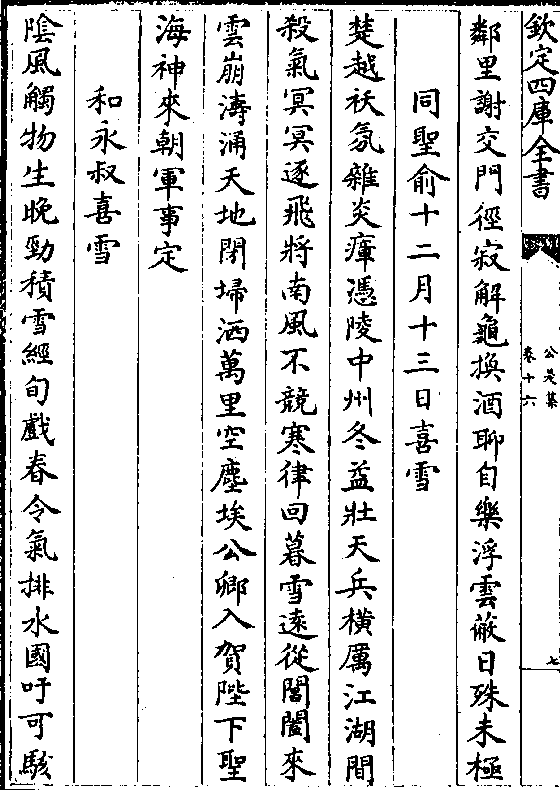 欽定四庫全書
公是集
卷十六
七
鄰里謝交門徑寂解龜換酒聊自樂浮雲蔽日殊未極
同聖俞十二月十三日喜雪
楚越祅氛雜炎瘴憑陵中州冬益壯天兵橫厲江湖間
殺氣冥冥逐飛將南風不競寒律回暮雪遠從閶闔來
雲崩濤涌天地閉埽洒萬里空塵埃公卿入賀陛下聖
海神來朝軍事定
和永叔喜雪
陰風觸物生晚勁積雪經旬戲春令氣排水國吁可駭